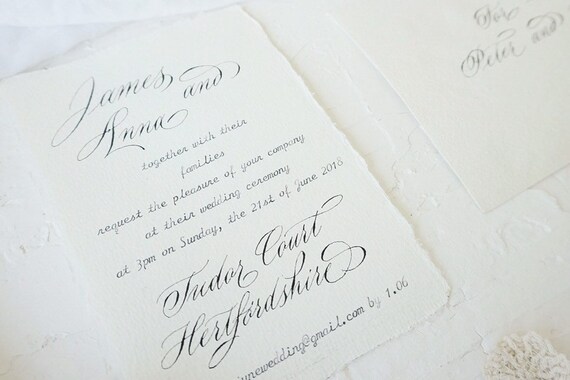 James and
Anna
together with their
families
request the pleasure of your company
at their wedding ceremony
at 3pm on Sunday, the 21st of June 2018
Tudor Court
Hertfordshire
junewedding@gmail.com by 1.06
For
Peter and